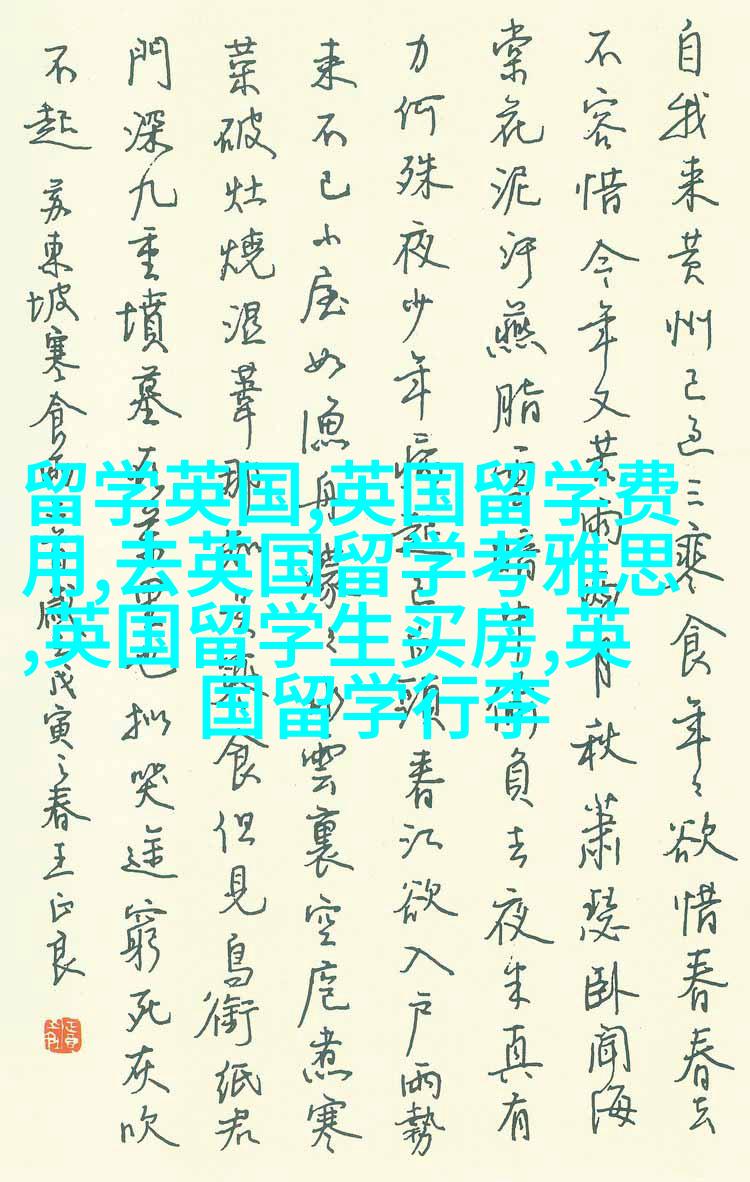 自我来黄州已过三寒食年々欲惜春春去
不容惜今年又苦雨两月秋萧瑟卧闻海
棠花泥汙燕脂雪暗中偷負去夜半真有
力何殊夜少年病起已頭春江欲入户雨勢
来不已小屋如渔舟濛々水雲裏空庖煮寒
菜破灶燒湿葦那知是寒食但見鳥銜紙君
門深九重墳墓在萬里也拟哭途窮死灰吹
不起 苏東坡寒食雨二首 歲戊寅之春王正良
留学英国,英国留学费
用,去英国留学考雅思
,英国留学生买房,英
国留学行李